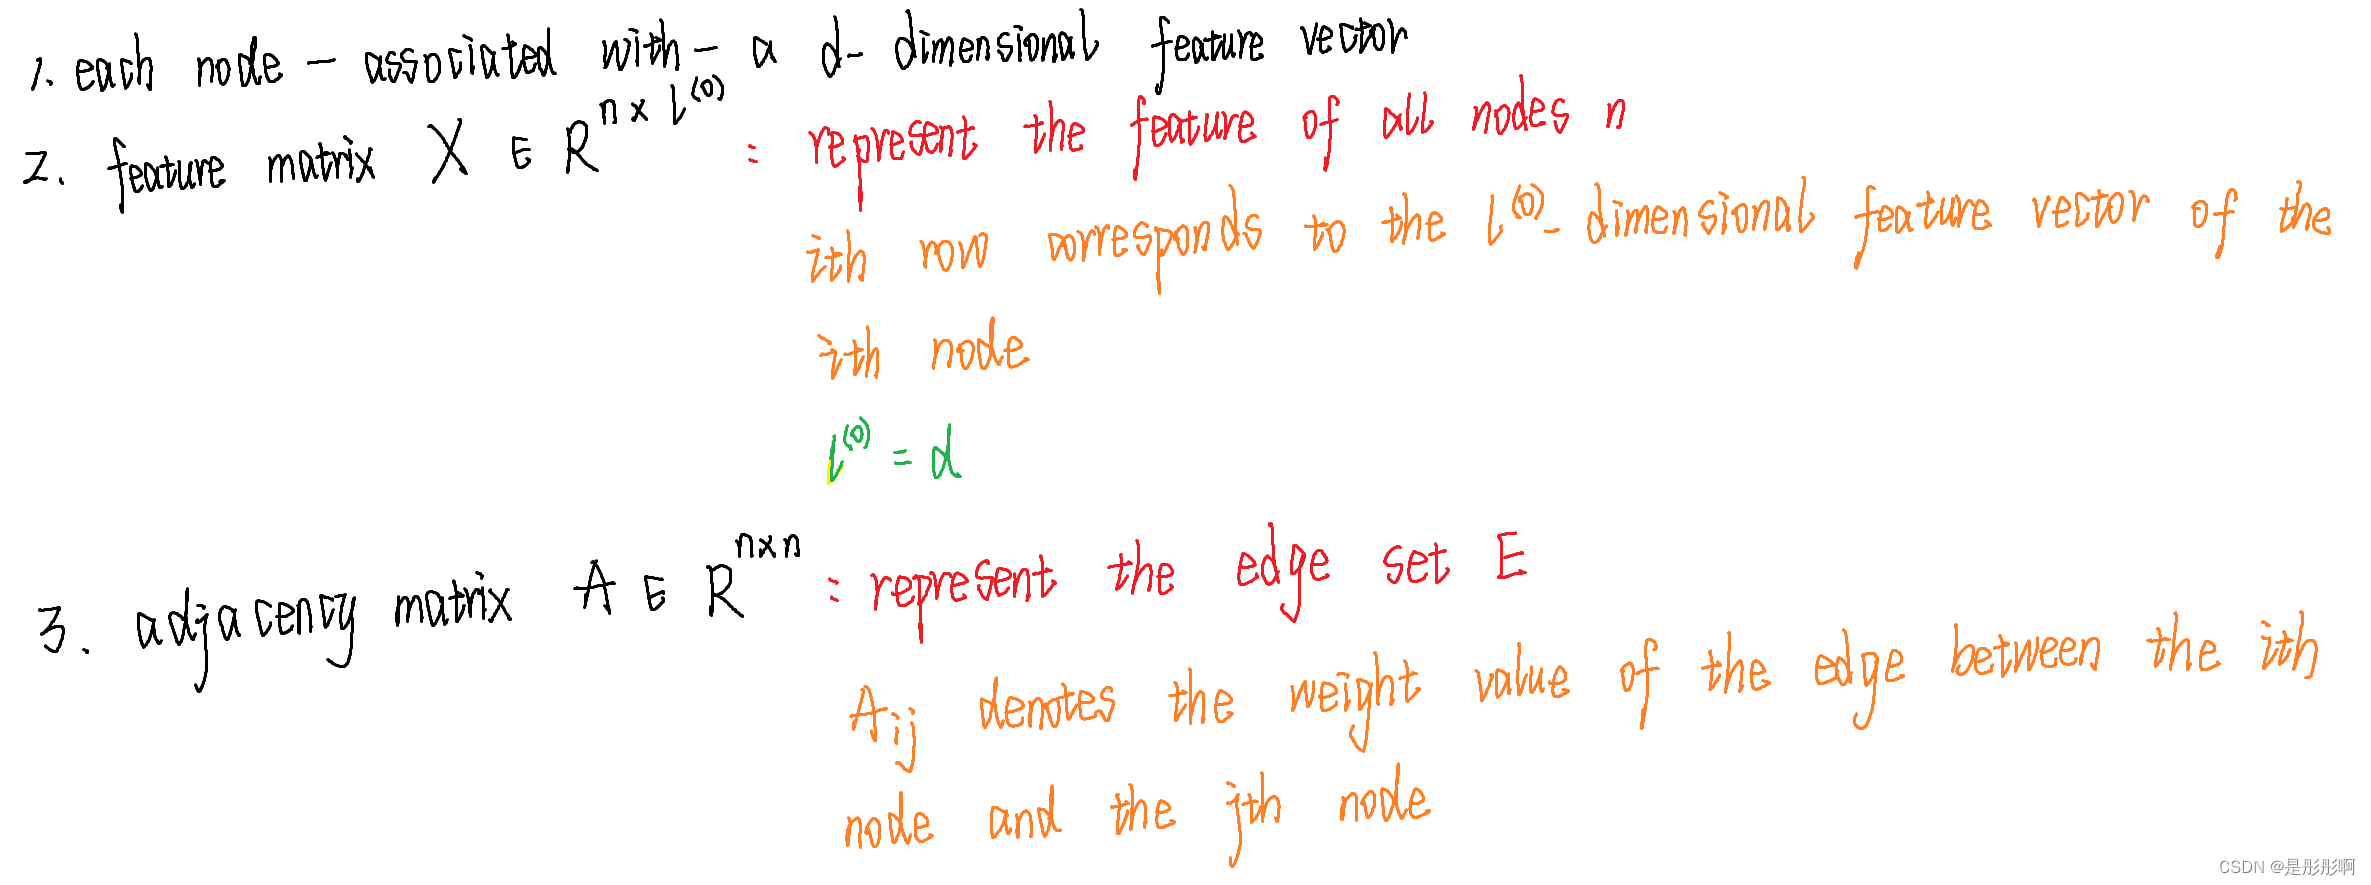 1. each node - associated with - a d- dimensional feature vector
2. feature matrix X ∈ R^{n×l^{(0)}} : represent the feature of all nodes n
ith row corresponds to the l^{(0)}- dimensional feature vector of the
ith node
l^{(0)} = d
3. adjacency matrix A ∈ R^{n×n} : represent the edge set E
A_{ij} denotes the weight value of the edge between the ith
node and the jth node
CSDN @是彤彤啊